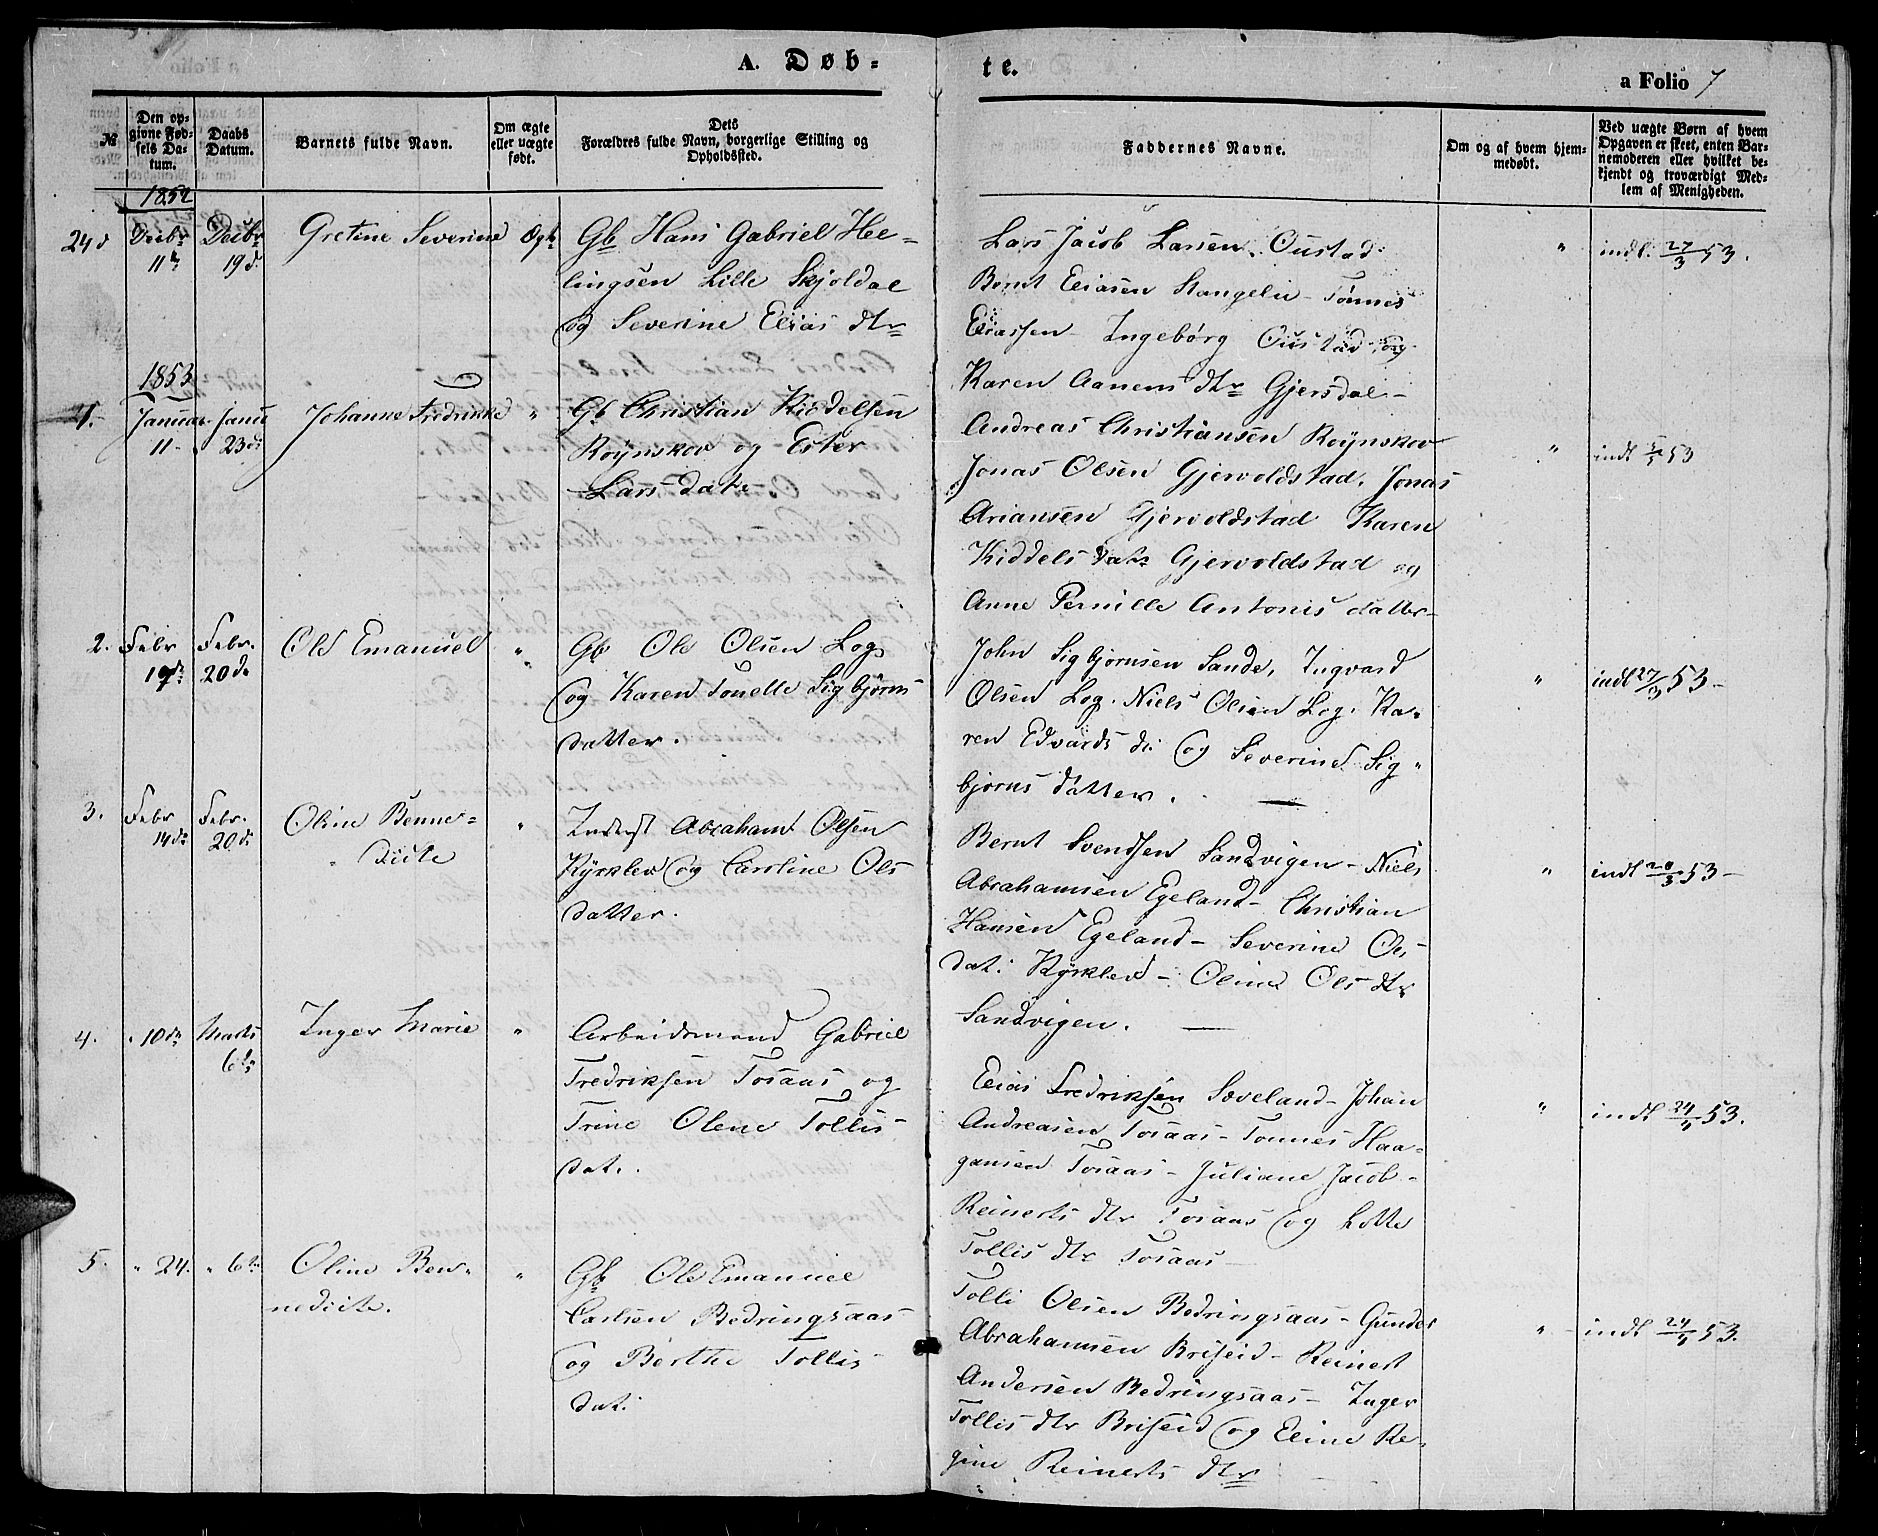 A. Døb-
te.
a Folio 7
№
Den op-
givne Fød-
sels Da-
tum.
Daabs
Datum.
Barnets fulde Navn.
Om ægte
eller uægte
født.
Dets
Forældres fulde Navn, borgerlige Stilling og
Opholdssted.
Faddernes Navne.
Om og af hvem hjem-
medøbt.
Ved uægte Børn af hvem
Opgaven er skeet, enten Bar-
nemoderen eller hvilket be-
kjendt og troværdigt Med-
lem af Menigheden.
1852
24d Decbr Decbr Gretine Severine Ægte Gb Hans Gabriel Hel-
11te 19d.
lingsen Lille Skjoldal
og Severine Elias dtr
Lars Jacob Larsen Oustad
Bernt Eliasen Stangelie - Tønnes
Eliassen - Ingebørg Oustad og
Karen Aanens dtr Gjersdal -
" indl. 27/3 53.
1853
1. Januar Janu Johanne Fredrikke " Gb Christian Kiddelsen
11 - 23de
Røynskov og Ester
Lars datr.
Andreas Christiansen Røynskov
Jonas Olsen Gjervoldstad. Jonas
Ariansen Gjervoldstad Karen
Kiddels datr Gjervoldstad og
Anne Pernille Antonis datter -
" indl 53
2. Febr Febr. Ole Emanuel " Gb Ole Olsen Log
19de 20de
og Karen Tonette Sigbjørns
datter.
John Sigbjørnsen Sande, Ingvard
Olsen Log. Niels Olsen Log. Ka-
ren Edvards dr og Severine Sig-
bjørns datter.
" indl 27/3 53 -
3. Febr Febr. Oline Benne- " Inderst Abraham Olsen
14de 20de
dicte
Kyrklev og Caroline Ols
datter.
Bernt Svendsen Sandvigen - Niels
Abrahamsen Egeland - Christian
Hansen Egeland - Severine Ols
dat: Kyrklev - Oline Ols dtr
Sandvigen.
" indl 20/3 53 -
4. " 10de Marts Inger Marie " Arbeidsmand Gabriel
6te
Fredriksen Tosaas og
Trine Olene Tollis-
dat.
Elias Fredriksen Soveland - Johan
Andreasen Tosaas - Tønnes Haa-
gansen Tosaas - Juliane Jacob-
Reinerts dtr Tosaas og Lotte
Tollis dtr Tosaas -
" indl 24/4 53.
5. " 24. " 6te Oline Ben- " Gb Ole Emanuel
nedicte.
Carlsen Bedringsaas
og Berthe Tollis
dat:
Tolli Olsen Bedringsaas - Gunder
Abrahamsen Briseid - Reinert
Andersen Bedringsaas - Inger
Tollis dtr Briseid og Eline Re-
gine Reinerts dtr
" - indl 24/4 53.